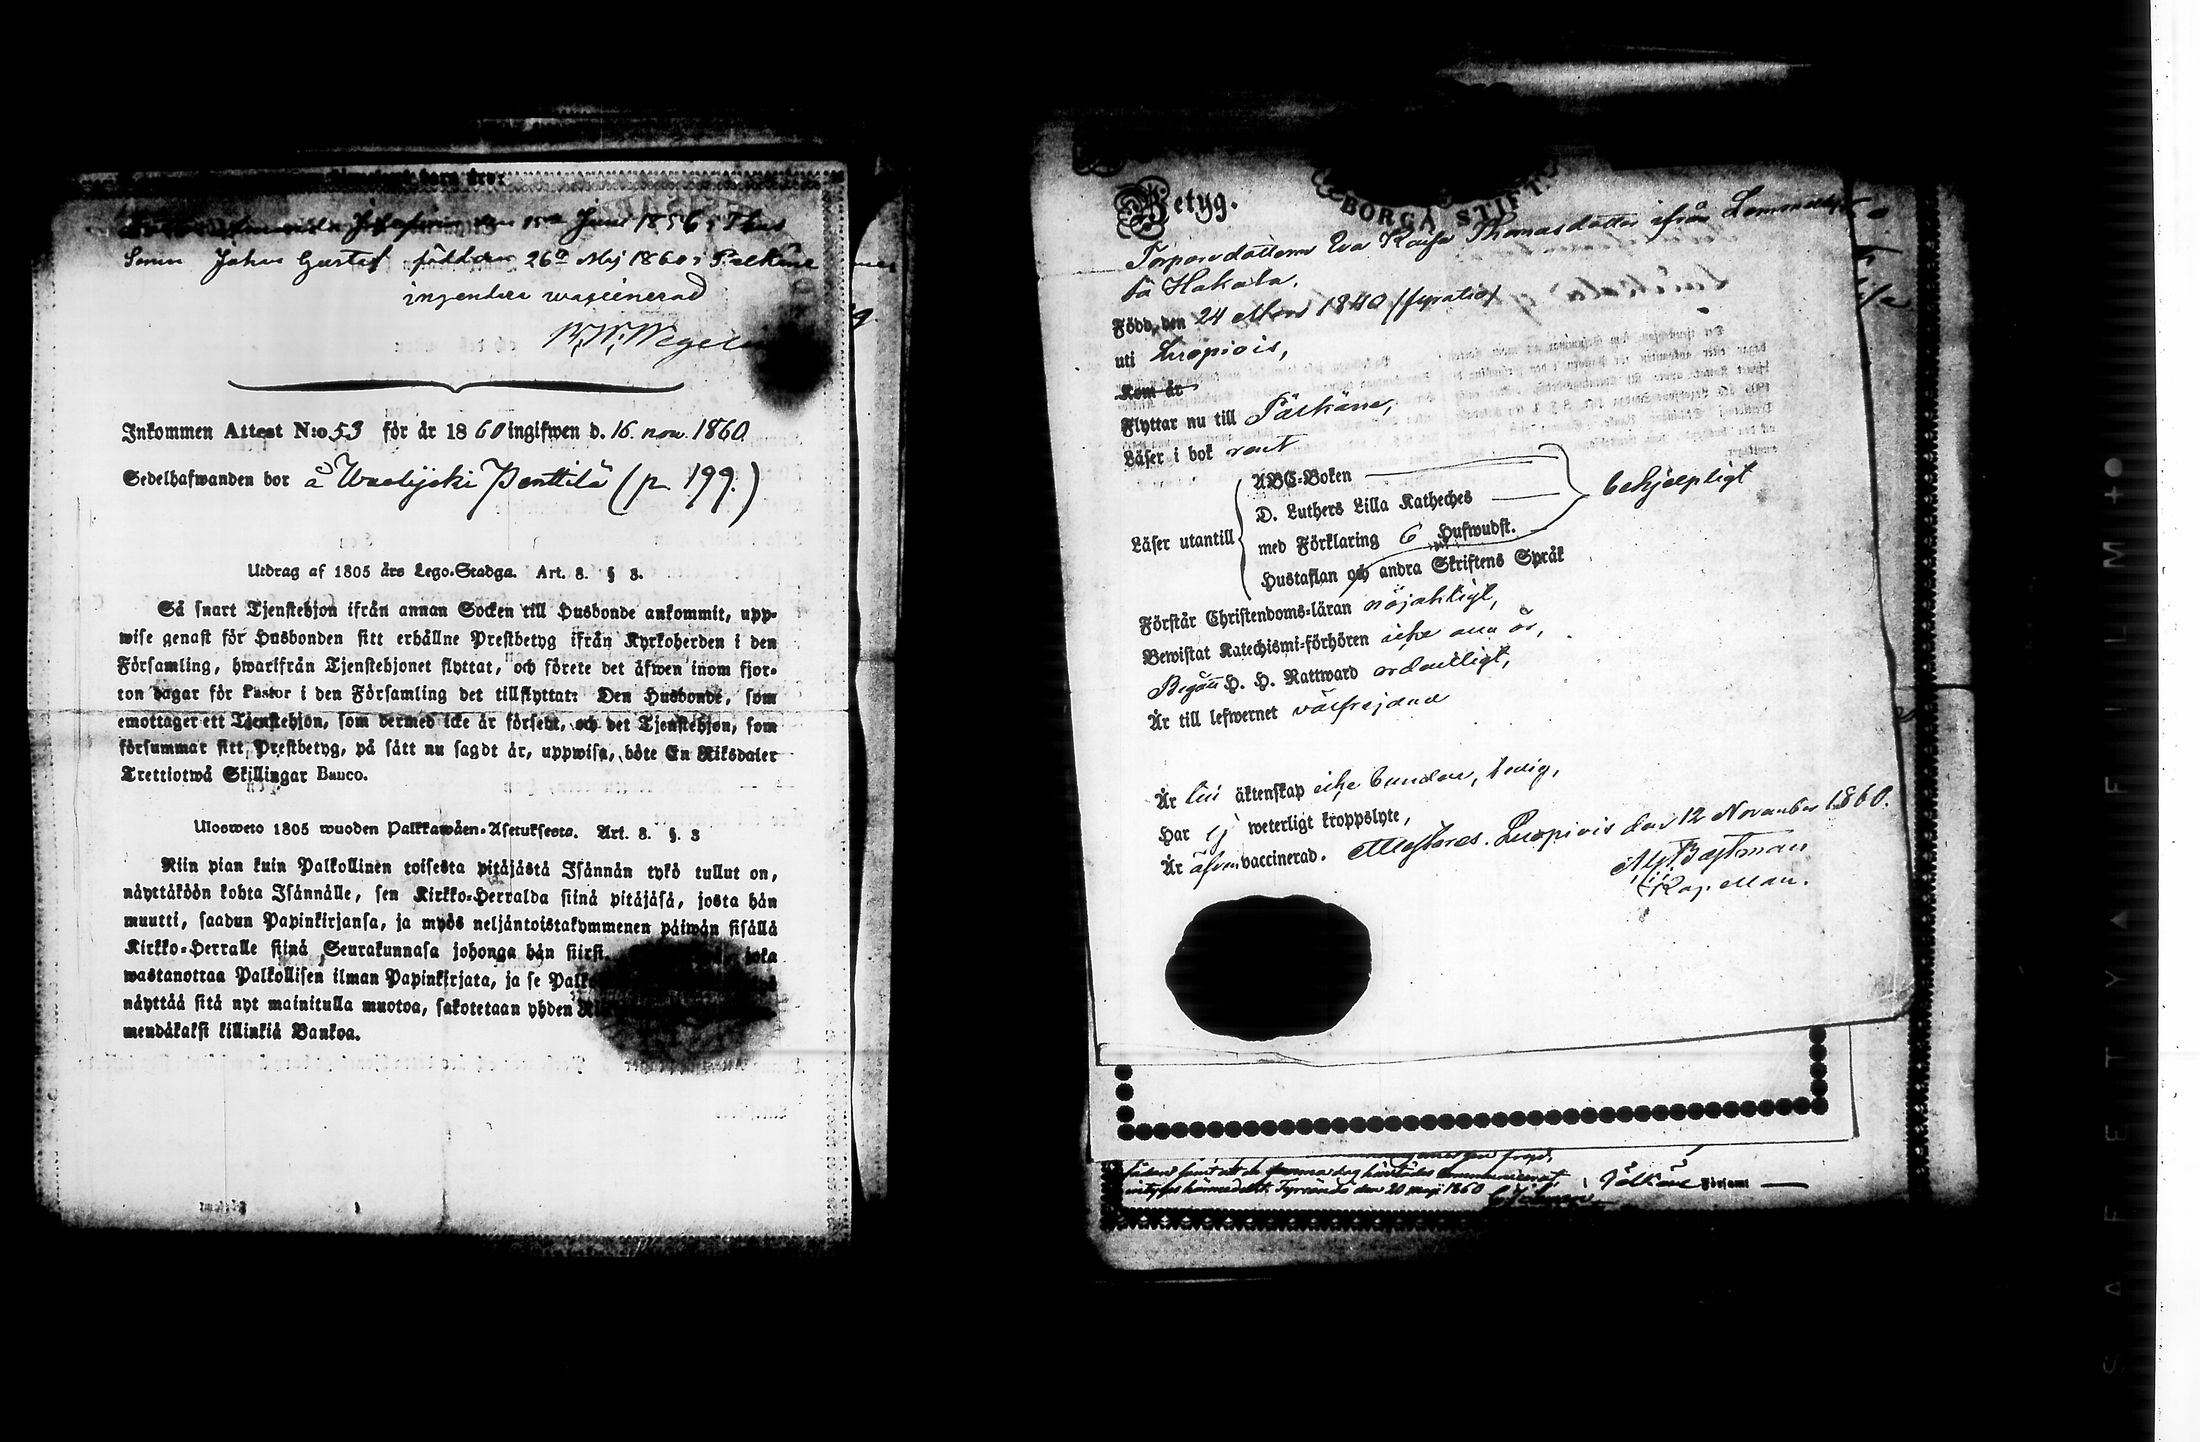 barn äro:
den 15de Juni 1856 i
Sonen Johan Gustaf född den 26de Maj 1860 i Pelkäne
ingendera waccinerad
Inkommen Attest N:o 53 för år 1860 ingifwen d. 16. nov. 1860
Sedelhafwanden bor å Waelijoki Penttilä (p. 199.)
Utdrag af 1805 års Lego-Stadga. Art. 8. § 3.
Så snart Tjenstehjon ifrån annan Socken till Husbonde ankommit, upp-
wise genast för Husbonden sitt erhållne Prestbetyg ifrån Kyrkoherden i den
Församling, hwarifrån Tjenstehjonet flyttat, och förete det äfwen inom fjor-
ton dagar för Pastor i den Församling det tillflyttat: Den Husbonde, som
emottager ett Tjenstehjon, som dermed icke är försedt, och det Tjenstehjon, som
försummar sitt Prestbetyg, på sätt nu sagdt är, uppwisa, böte En Riksdaler
Trettiotwå Skillingar Banco.
Ulosweto 1805 wuoden Palkkawäen-Asetuksesta. Art. 8. §. 3
Niin pian kuin Palkollinen toisesta pitäjästä Isännän tykö tullut on,
näyttäköön kohta Isännälle, sen Kirkko-Herralda siinä pitäjäsä, josta hän
muutti, saadun Papinkirjansa, ja myös neljäntoistakymmenen päiwän sisällä
Kirkko-Herralle siinä Seurakunnasa johonga hän siirsi. joka
wastanottaa Palkollisen ilman Papinkirjata, ja se
näyttää sitä nyt mainitulla muotoa, sakotetaan yhden
mendäkaksi killinkiä Bankoa.
Betyg.
BORGÅ STIFT.
Torparedottern Eva Kaisa Thomasdotter ifrån
Hakala.
Född den 24 1840 (fyratio)
uti Luopiois,
Kom år
Flyttar nu till Pälkäne,
Läser i bok rent
Läser utantill
ABC-Boken
D. Luthers Lilla Katheches
med Förklaring 6 Hufwudst.
Hustaflan och andra Skriftens Språk
behjelpligt
Förstår Christendoms-läran nöjaktigt,
Bewistat Katechismi-förhören icke alla år,
Begått H. H. Nattward ordentligt,
Är till lefwernet välfrejdad
Är till äktenskap icke bunden, ledig,
Har ej weterligt kroppslyte,
Är äfven vaccinerad. Attesteras. Luopiois den 12 November 1860.
Kapellan.
den 20 maj 1860
Pälkäne Församl
SAFETY FILM